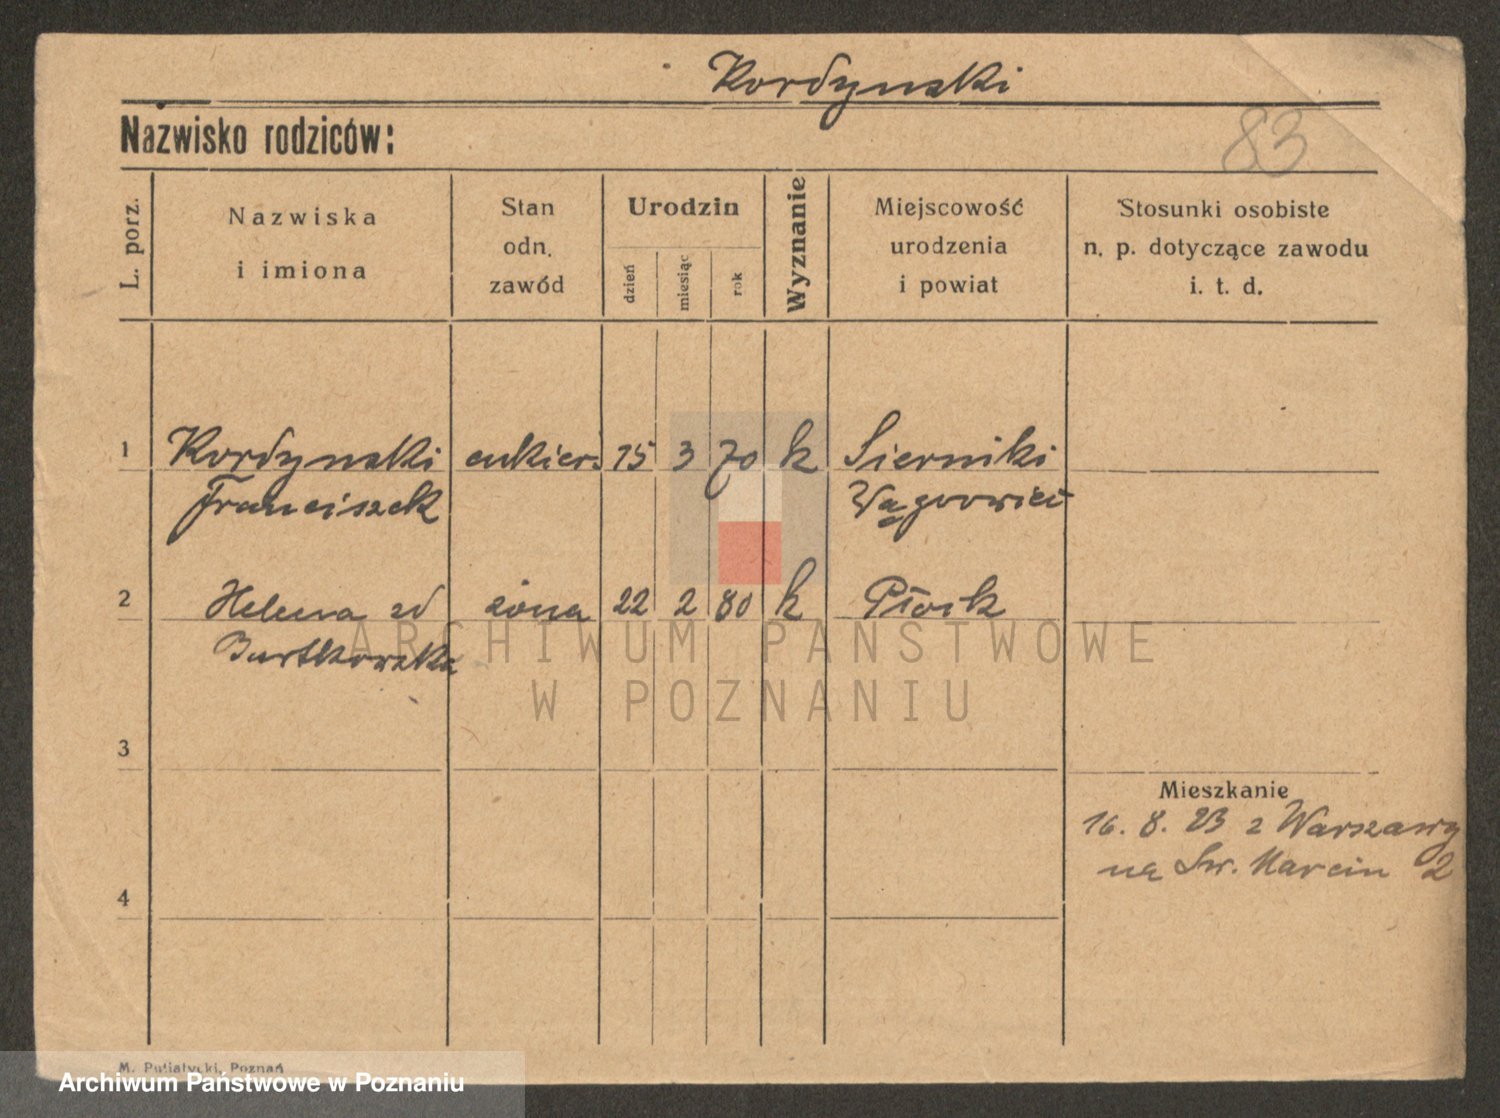 Kordynski
Nazwisko rodziców:
83
L. porz.
Nazwiska
i imiona
Stan
odn.
zawód
Urodzin
dzień
miesiąc
rok
Wyznanie
Miejscowość
urodzenia
i powiat
Stosunki osobiste
n. p. dotyczące zawodu
i. t. d.
1 Kordynski cukiern 15 3 70 k Sierniki
Franciszek Wągrowiec
2 Helena zd żona 22 2 80 k Płock
Burtkowska
ARCHIWUM PAŃSTWOWE
W POZNANIU
3
Mieszkanie
16. 8. 23 z Warszawy
na Św. Marcin 2
4
M. Putiatycki, Poznań
Archiwum Państwowe w Poznaniu